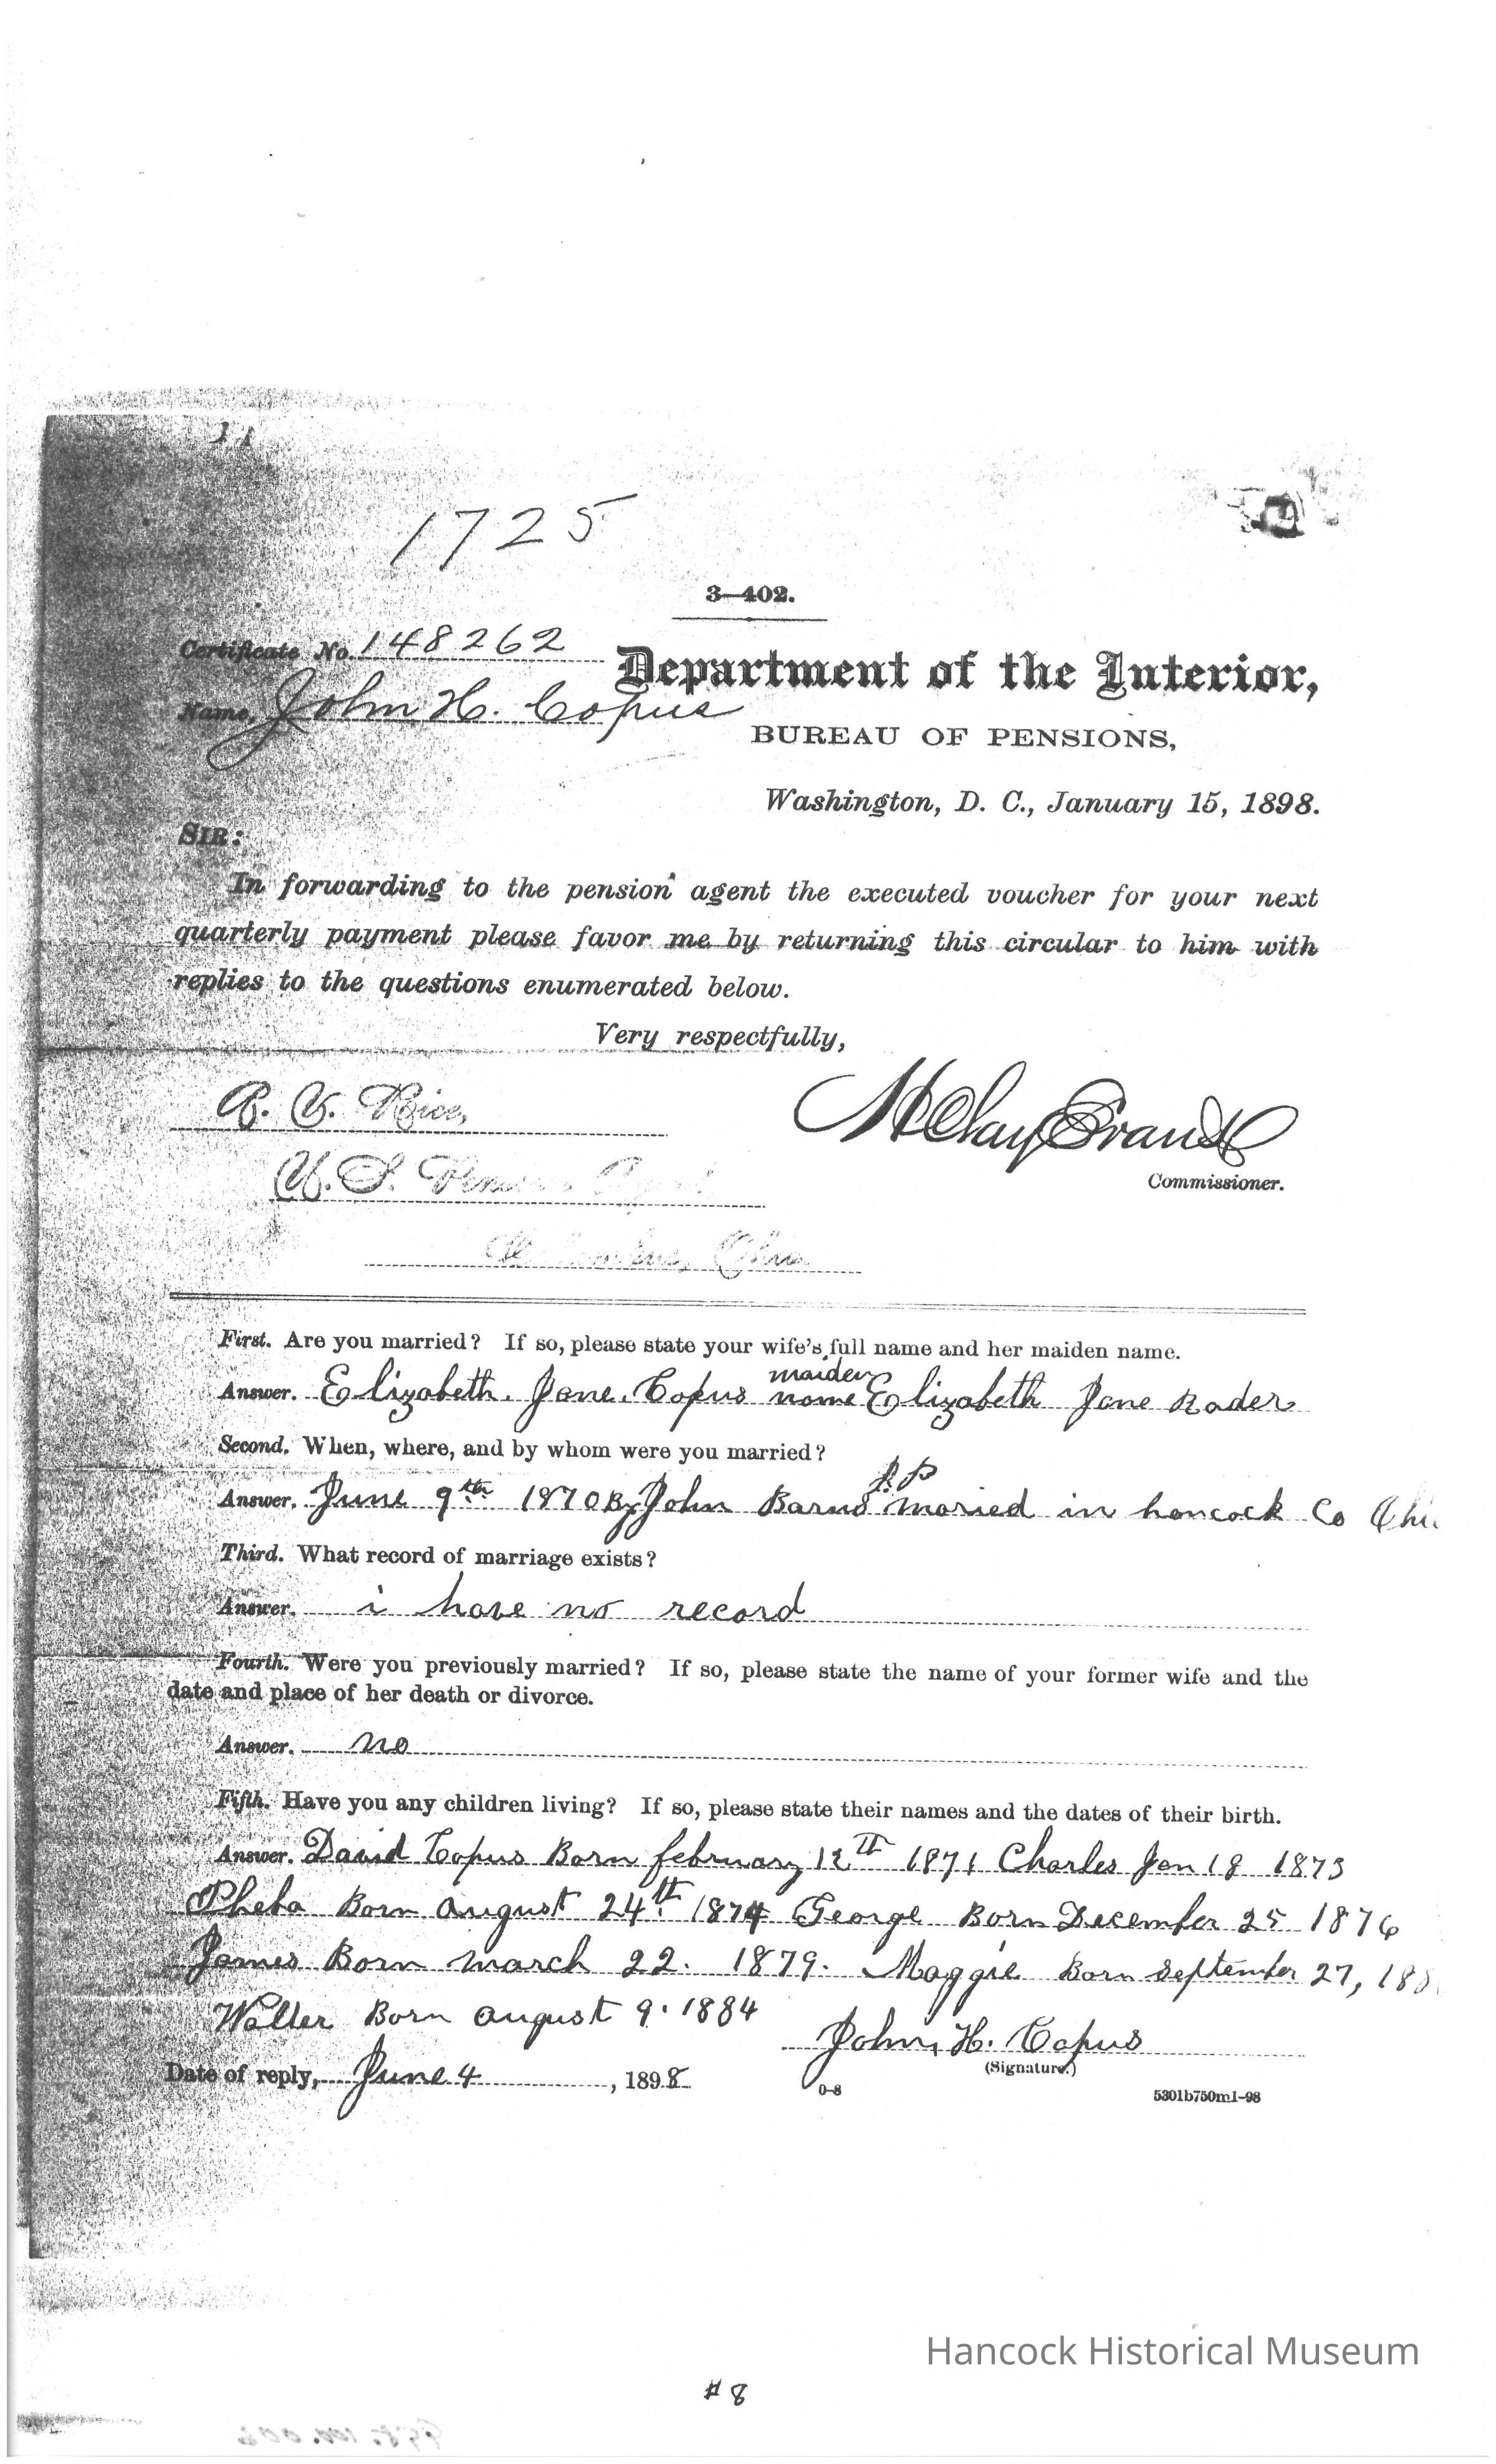 1725
3—402.
Certificate No. 148262
Department of the Interior,
Name, John H. Copus
BUREAU OF PENSIONS,
Washington, D. C., January 15, 1898.
SIR:
In forwarding to the pension agent the executed voucher for your next
quarterly payment please favor me by returning this circular to him with
replies to the questions enumerated below.
Very respectfully,
Rice,
H Clay Evans
U. S. Pension Agent
Commissioner.
Columbus, Ohio
First. Are you married? If so, please state your wife's full name and her maiden name.
maiden
Answer. Elizabeth. Jane. Copus name Elizabeth Jane Rader
Second. When, where, and by whom were you married?
J. P
Answer. June 9th 1870 By John Barnd maried in hancock Co Ohi
Third. What record of marriage exists?
Answer. i have no record
Fourth. Were you previously married? If so, please state the name of your former wife and the
date and place of her death or divorce.
Answer. no
Fifth. Have you any children living? If so, please state their names and the dates of their birth.
Answer. David Copus Born february 12th 1871 Charles Jan 18 1873
Pheba Born august 24th 1874 George Born December 25 1876
James Born march 22. 1879. Maggie Born September 27, 188
Walter Born august 9. 1884
John, H. Copus
Date of reply, June 4, 1898
(Signature.)
0-8
5301b750m1-98
Hancock Historical Museum
# 8